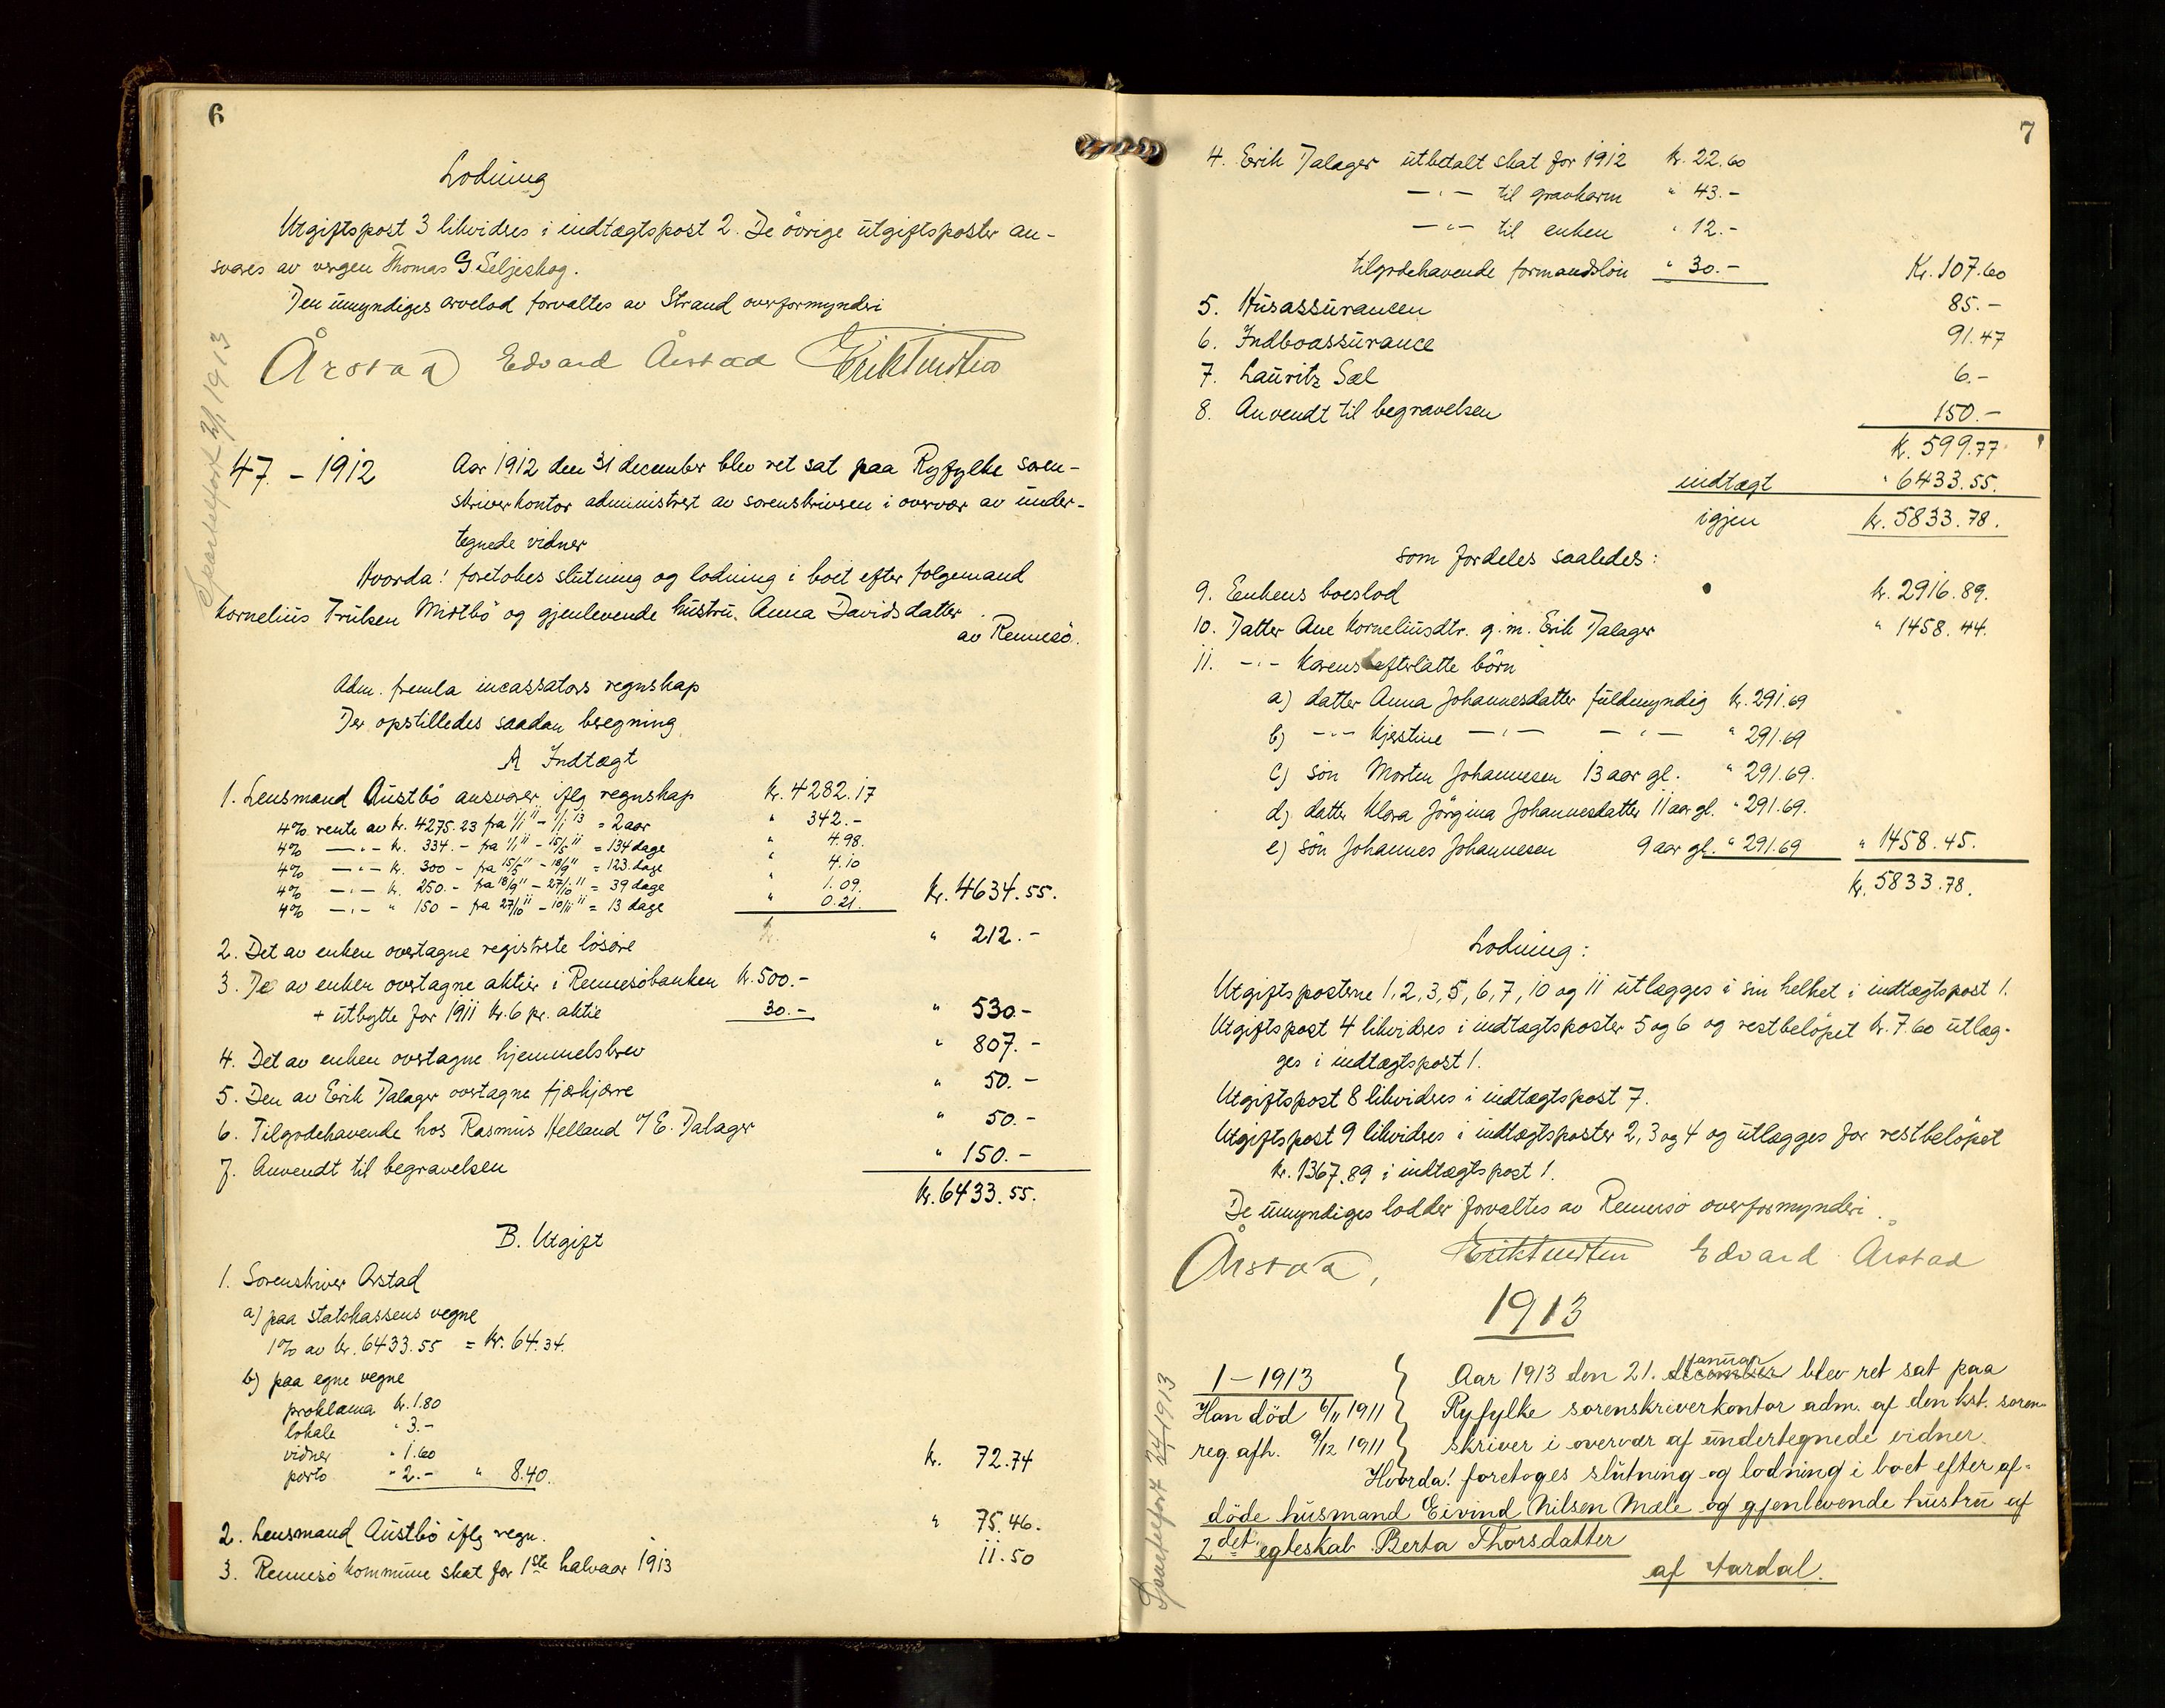 6
Lodning
Utgiftspost 3 likvidres i indtægtspost 2. De övrige utgiftsposter an-
svares av vergen Thomas G Seljeskog.
Den umyndiges arvelod forvaltes av Strand overformynderi
Årstad Edvard Årstad Erik Knudsen
1913
47. - 1912
Aar 1912 den 31 december blev ret sat paa Ryfylke soren-
skriverkontor administrert av sorenskriveren i overvær av under-
tegnede vidner
Hvorda! foretokes slutning og lodning i boet efter
Kornelius Trulsen Mistbö og gjenlevende hustru. Anna Davidsdatter
av Rennesö.
Adm. fremla incassators regnskap
Der opstilledes saadan beregning
A Indtægt
1. Lensmand Austbö ansvarer iflg regnskap kr. 4282.17
4% rente av kr. 4275.23 fra 1/1 11 - 1/1 13 = 2 aar " 342.-
4% —"— kr. 334.- fra 1/1 11 - 15/5 11 = 134 dage " 4.98.
4% —"— kr. 300 - fra 15/5 11 - 18/9 11 = 123 dage " 4.10
4% —"— kr. 250.- fra 18/9 11 - 27/10 11 = 39 dage " 1.09.
4% —"— " 150 - fra 27/10 11 - 10/11 11 = 13 dage " 0.21. kr. 4634.55.
2. Det av enken overtagne registrerte lösöre kr. " 212.-
3. De av enken overtagne aktier i Rennesöbanken kr. 500.-
+ utbytte for 1911 kr. 6 pr. aktie 30.- " 530.-
4. Det av enken overtagne hjemmelsbrev " 807.-
5. Den av Erik Dalager overtagne fjærkjærre " 50.-
6. Tilgodehavende hos Rasmus Helland v/ E. Dalager " 50.-
7. Anvendt til begravelsen " 150.-
kr. 6433.55.
B. Utgift
1. Sorenskriver Arstad
a) paa statskassens vegne
1% av kr. 6433.55 = kr. 64.34.
b) paa egne vegne
proklama kr. 1.80
lokale " 3.-
vidner " 1.60
porto " 2.- " 8.40. kr. 72.74
2. Lensmand Austbö iflg regn. " 75.46.
3. Rennesö kommune skat for 1ste halvaar 1913 11.50
7
4. Erik Dalager utbetalt skat for 1912 kr. 22.60
—"— til gravkarm " 43.-
—"— til enken " 12.-
tilgodehavende formandslön " 30.- Kr. 107.60
5. Husassurancen 85.-
6. Indboassurance 91.47
7. Lauritz Sæl 6.-
8. Anvendt til begravelsen 150.-
kr. 599.77
indtægt " 6433.55.
igjen kr. 5833.78.
som fordeles saaledes:
9. Eenkens boeslod kr. 2916.89.
10. Datter Ane Korneliusdtr. g.m. Erik Dalager " 1458.44.
11. —"— Karens efterlatte börn
a) datter Anna Johannesdatter fuldmyndig kr. 291.69
b) —"— Kjerstine —"— —"— " 291.69
c) sön Morten Johannesen 13 aar gl. " 291.69.
d) datter Klara Jörgina Johannesdatter 11 aar gl. " 291.69.
e) sön Johannes Johannesen 9 aar gl. " 291.69 " 1458.45.
kr. 5833.78.
Lodning:
Utgiftsposterne 1, 2, 3, 5, 6, 7, 10 og 11 utlægges i sin helhet i indtægtspost 1.
Utgiftspost 4 likvidres i indtægtsposter 5 og 6 og restbelöpet kr. 7.60 utlæg-
ges i indtægtspost 1.
Utgiftspost 8 likvidres i indtægtspost 7.
Utgiftspost 9 likvidres i indtægtsposter 2, 3 og 4 og utlægges for restbelöpet
kr. 1367.89 i indtægtspost 1.
De umyndiges lodder forvaltes av Rennesö overformynderi.
Årstad, Erik Knudsen Edvard Årstad
1913
1 - 1913
Han död 6/11 1911
reg. afh. 9/12 1911
Aar 1913 den 21. december januar blev ret sat paa
Ryfylke sorenskriverkontor adm. af den kst. soren-
skriver i overvær af undertegnede vidner.
Hvorda! foretoges slutning og lodning i boet efter af-
döde husmand Eivind Nilsen Mæle og gjenlevende hustru af
2det egteskab Berta Thorsdatter
af Aardal.
24/1 1913